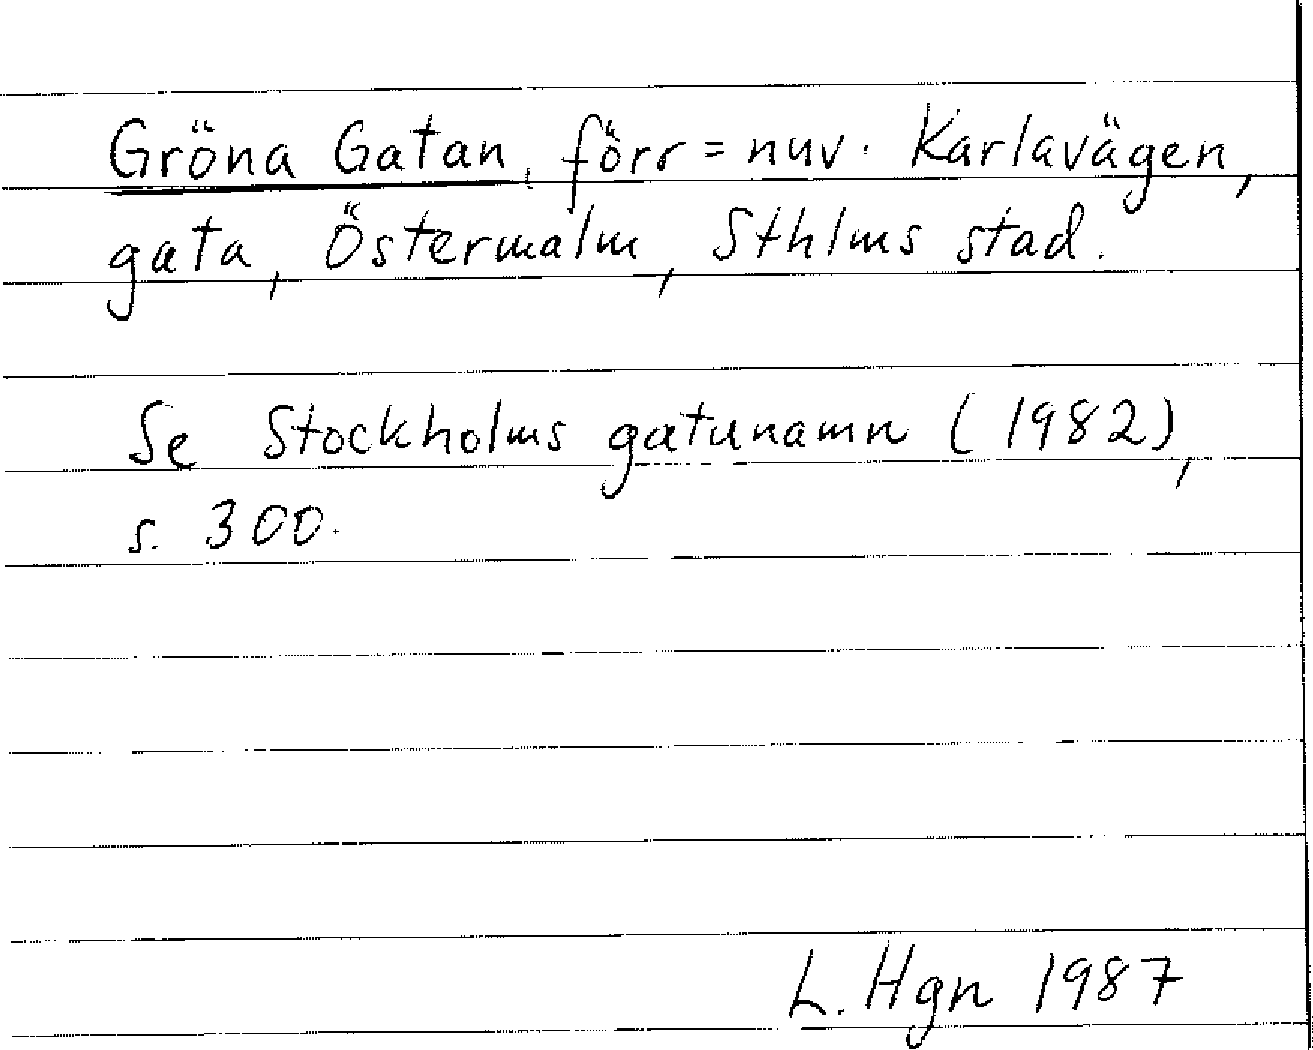 Gröna Gatan, förr = nuv. Karlavägen,
gata, Östermalm, Sthlms stad.
Se Stockholms gatunamn (1982),
s. 300.
L. Hgn 1987